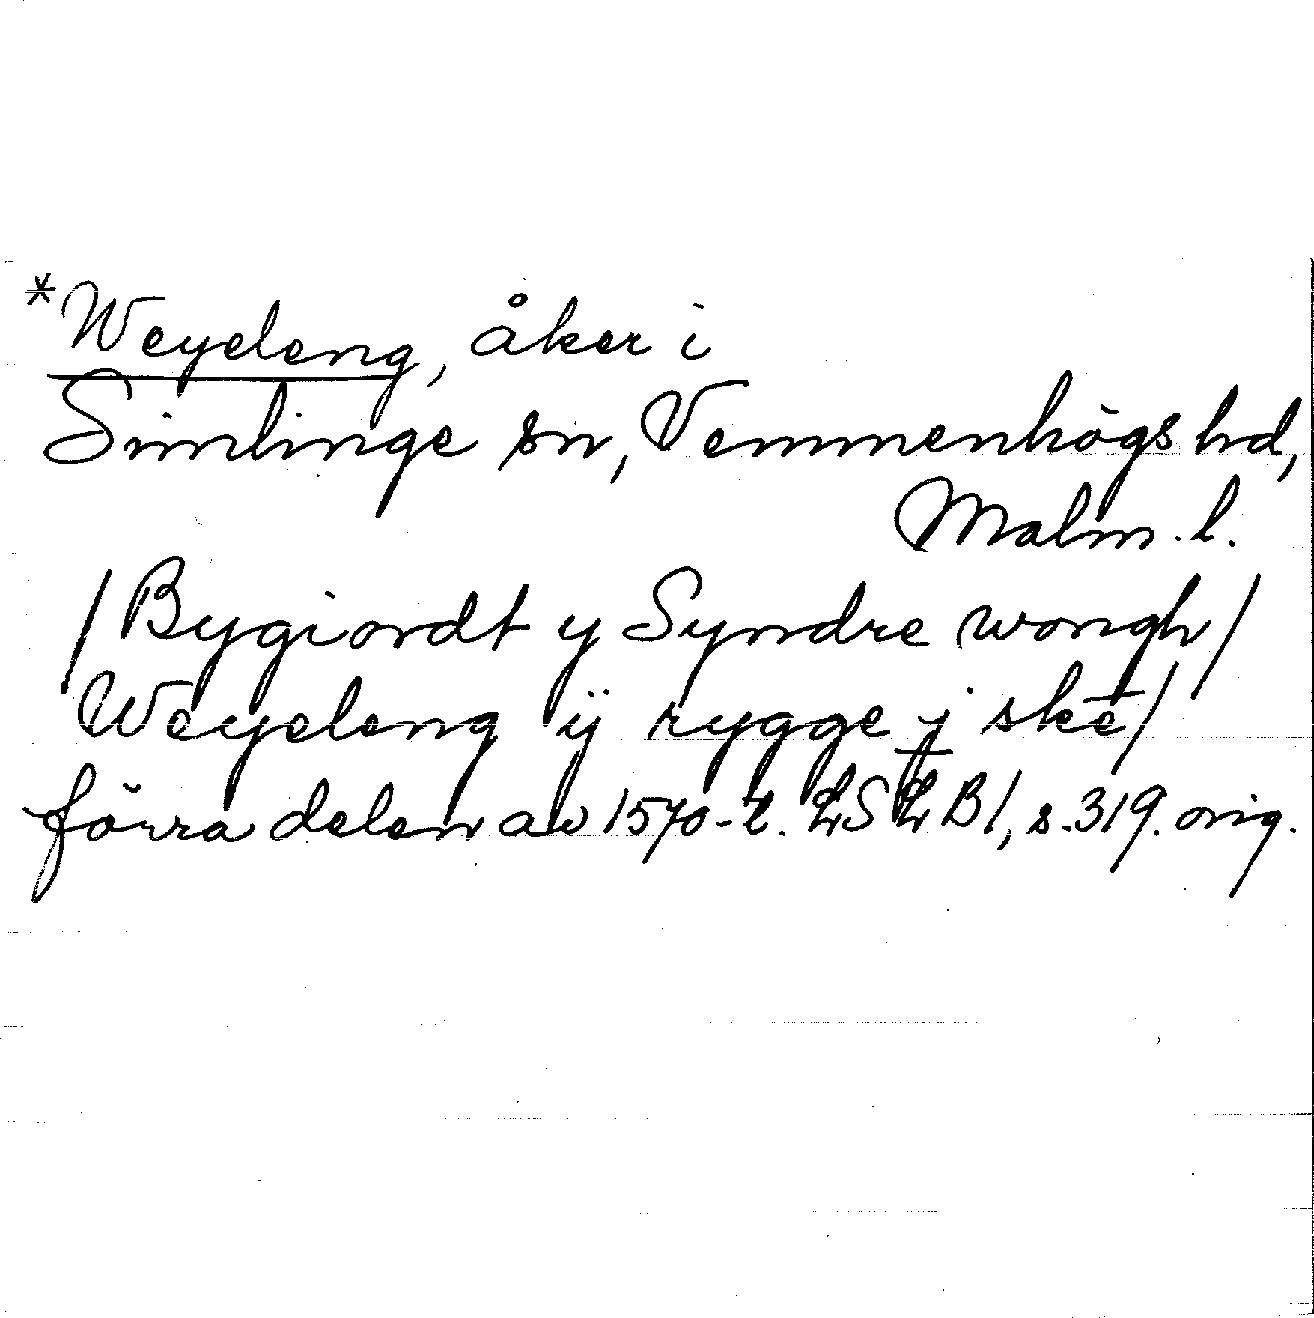 *Weyeleng, åker i
Simlinge sn, Vemmenhögs hd,
Malm. l.
/Bygiordt y Syndre wongh/
Weyeleng ÿ rygge j skē/
förra delen av 1570-t. LSLB1, s. 319. orig.